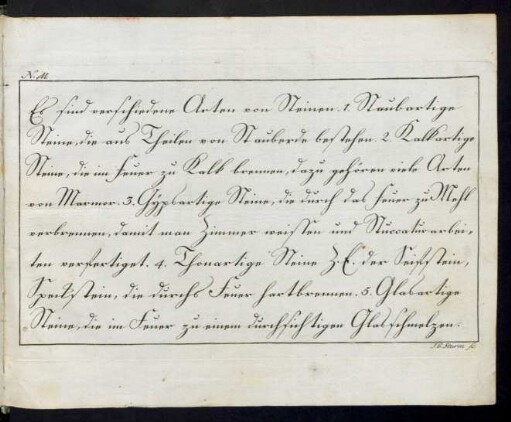 N. 11.
Es sind verschiedene Arten von Steinen. 1. Staubartige
Steine, die aus Theilen von Stauberde bestehen. 2. Kalkartige
Steine, die im Feuer zu Kalk brennen, dazu gehören viele Arten
von Marmor. 3. Gypsartige Steine, die durch das Feuer zu Mehl
verbrennen, damit man Zimmer weissen und Stuccaturarbei-
ten verfertiget. 4. Thonartige Steine Z. E. der Seifstein,
Speckstein, die durchs Feuer hartbrennen. 5. Glasartige
Steine, die im Feuer zu einem durchsichtigen Glas schmelzen.